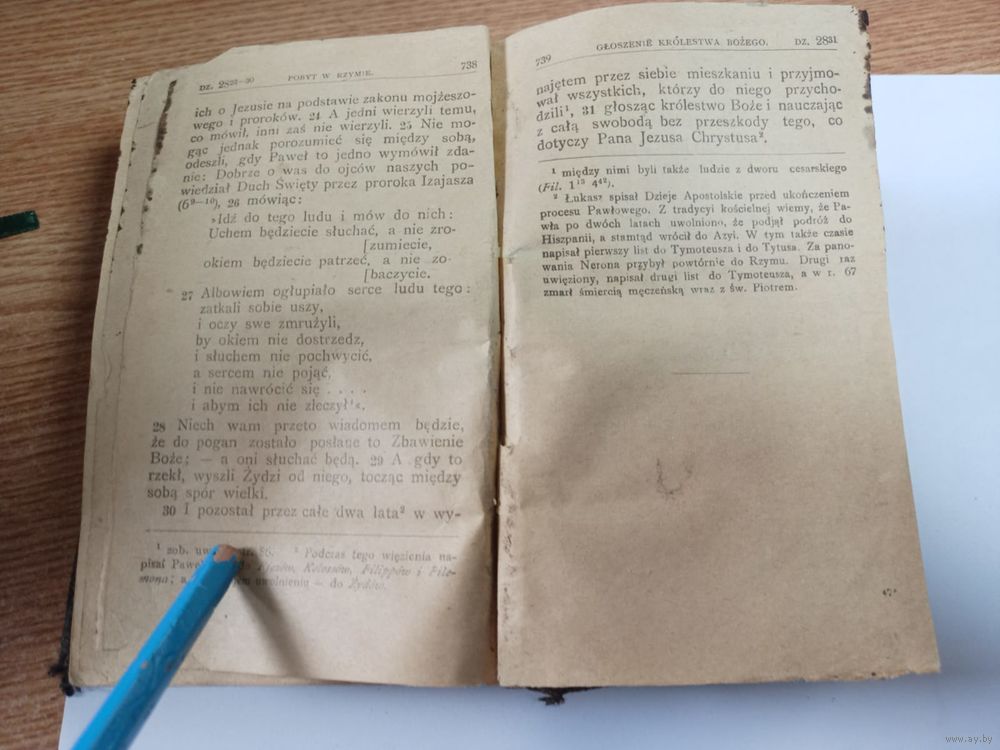 DZ. 28²³⁻³⁰ POBYT W RZYMIE. 738
ich o Jezusie na podstawie zakonu mojżeszo-
wego i proroków. 24 A jedni wierzyli temu,
co mówił, inni zaś nie wierzyli. 25 Nie mo-
gąc jednak porozumieć się między sobą,
odeszli, gdy Paweł to jedno wymówił zda-
nie: Dobrze o was do ojców naszych po-
wiedział Duch Święty przez proroka Izajasza
(6⁹⁻¹⁰), 26 mówiąc:
»Idź do tego ludu i mów do nich:
Uchem będziecie słuchać, a nie zro-
[zumiecie,
okiem będziecie patrzeć, a nie zo-
[baczycie.
27 Albowiem ogłupiało serce ludu tego:
zatkali sobie uszy,
i oczy swe zmrużyli,
by okiem nie dostrzedz,
i słuchem nie pochwycić,
a sercem nie pojąć,
i nie nawrócić się . . . .
i abym ich nie zleczył¹«.
28 Niech wam przeto wiadomem będzie,
że do pogan zostało posłane to Zbawienie
Boże; — a oni słuchać będą. 29 A gdy to
rzekł, wyszli Żydzi od niego, tocząc między
sobą spór wielki.
30 I pozostał przez całe dwa lata² w wy-
¹ zob. 86. ² Podczas tego więzienia na-
pisał Kolosów, Filippów i File-
mona; a uwolnieniu — do Żydów.
739 GŁOSZENIE KRÓLESTWA BOŻEGO. DZ. 28³¹
najętem przez siebie mieszkaniu i przyjmo-
wał wszystkich, którzy do niego przycho-
dzili¹, 31 głosząc królestwo Boże i nauczając
z całą swobodą bez przeszkody tego, co
dotyczy Pana Jezusa Chrystusa².
¹ między nimi byli także ludzie z dworu cesarskiego
(Fil. 1¹³ 4⁴²).
² Łukasz spisał Dzieje Apostolskie przed ukończeniem
procesu Pawłowego. Z tradycyi kościelnej wiemy, że Pa-
wła po dwóch latach uwolniono, że podjął podróż do
Hiszpanii, a stamtąd wrócił do Azyi. W tym także czasie
napisał pierwszy list do Tymoteusza i do Tytusa. Za pano-
wania Nerona przybył powtórnie do Rzymu. Drugi raz
uwięziony, napisał drugi list do Tymoteusza, a w r. 67
zmarł śmiercią męczeńską wraz z św. Piotrem.
47*
www.ay.by